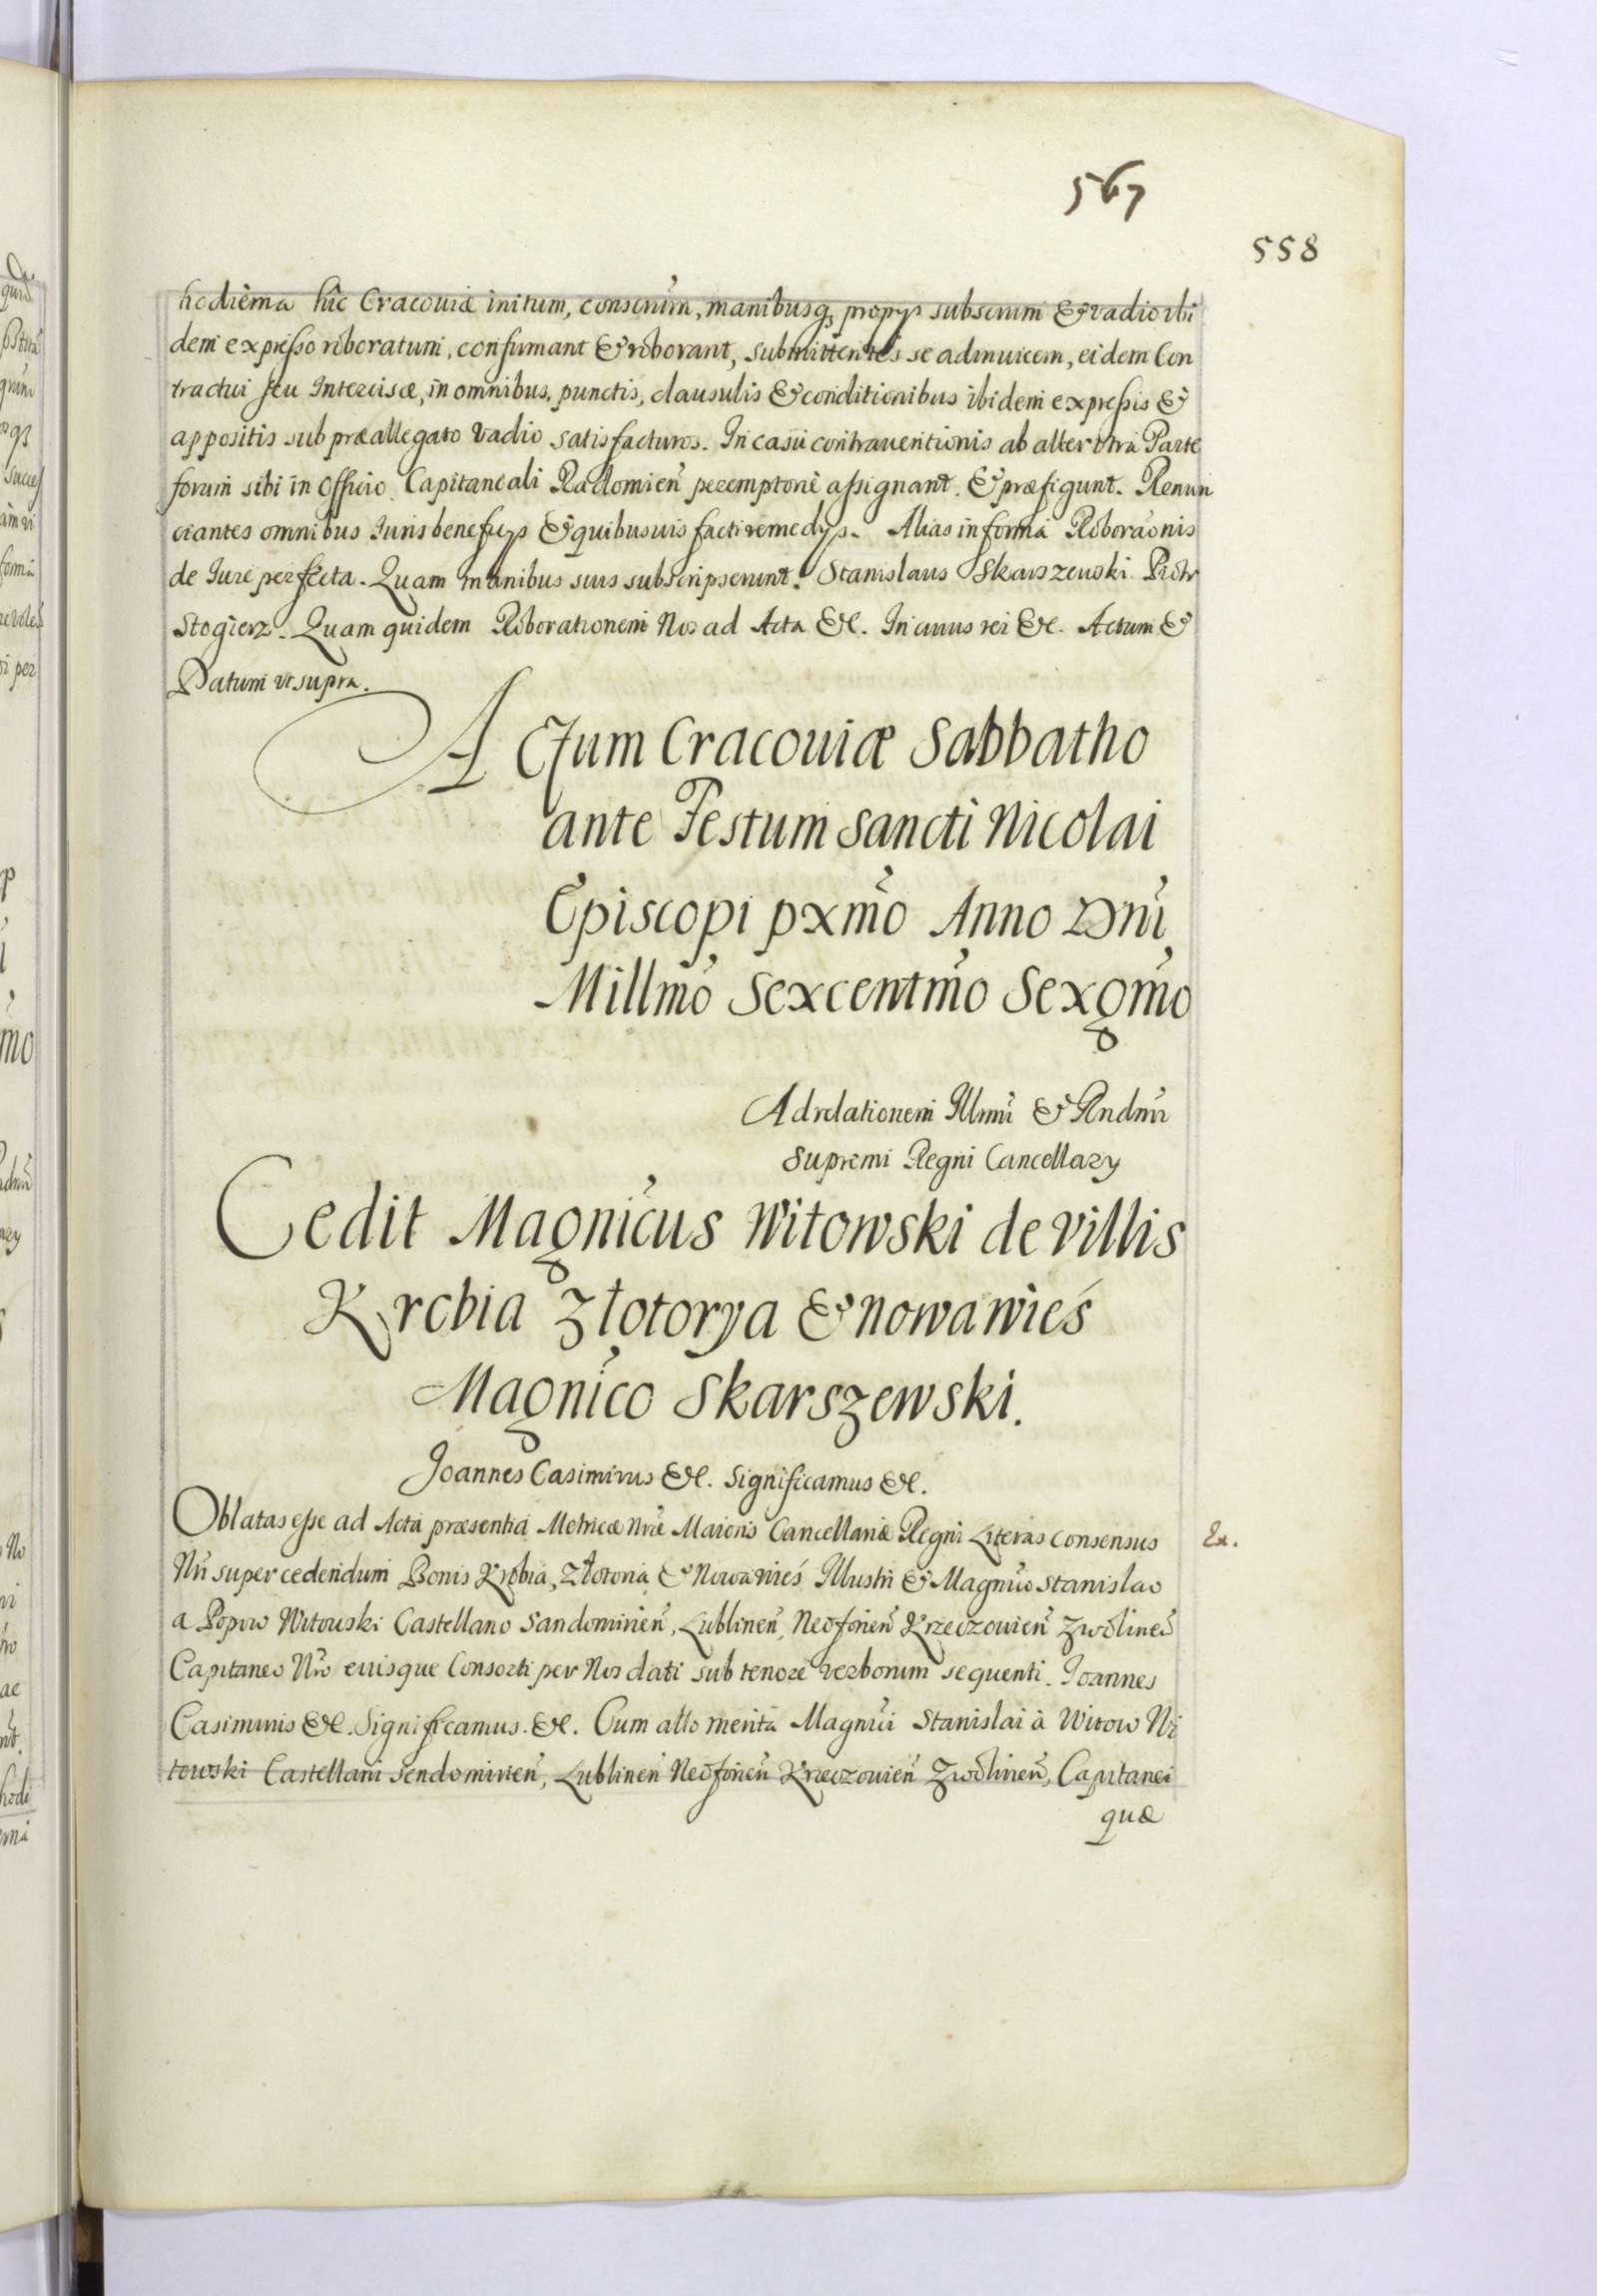 567
558
hodierna hic Cracouiæ initum, conscrim̃, manibusq3 propys subscrimi & vadio ibi
dem expresso roboratum, confirmant & roborant, submittentes se adinuicem, eidem Con
tractui seu Intercisæ, in omnibus, punctis, clausulis & conditionibus ibidem expressis &
appositis sub præallegato vadio satisfacturos. In casu contrauentionis ab alterutra Parte
forum sibi in Officio Capitaneali Radomień peremptorie assignant. & præfigunt. Renun
ciantes omnibus Iuris beneficys & quibusuis facti remedys. Alias in forma Roboraonis
de Iure perfecta. Quam manibus suis subscripserunt. Stanislaus Skarszewski Piotr
Stogierz. Quam quidem Roborationem Nos ad Acta &c. In cuius rei &c. Actum &
Datum vt supra.
Actum Cracouiæ Sabbatho
ante Festum Sancti Nicolai
Episcopi pxmo Anno Dni
Millmo Sexcentmo Sexgmo
Ad relationem Illmi & Rndmi
Supremi Regni Cancellary
Cedit Magnicus Witowski de villis
Krobia Złotorya & Nowawieś
Magnico Skarszewski.
Joannes Casimirus &c. Significamus &c.
Oblatas esse ad Acta præsentia Metricæ Nræ Maioris Cancellariæ Regni Literas Consensus
Ex.
Nri super cedendum Bonis Krobia, Złotoria & Nowawieś Illustri & Magnico Stanislao
a Popow Witowski Castellano Sandomirień, Lublineń, Neoforień Krzeczowień Zwolineń
Capitaneo Nro eiusque Consorti per Nos dati sub tenore verborum sequenti. Joannes
Casimirus &c. Significamus. &c. Cum atto merita Magnici Stanislai à Witow Wi
towski Castellani Sendomirień, Lublineń Neoforień Krzeczowień Zwolineń, Capitanei
quæ